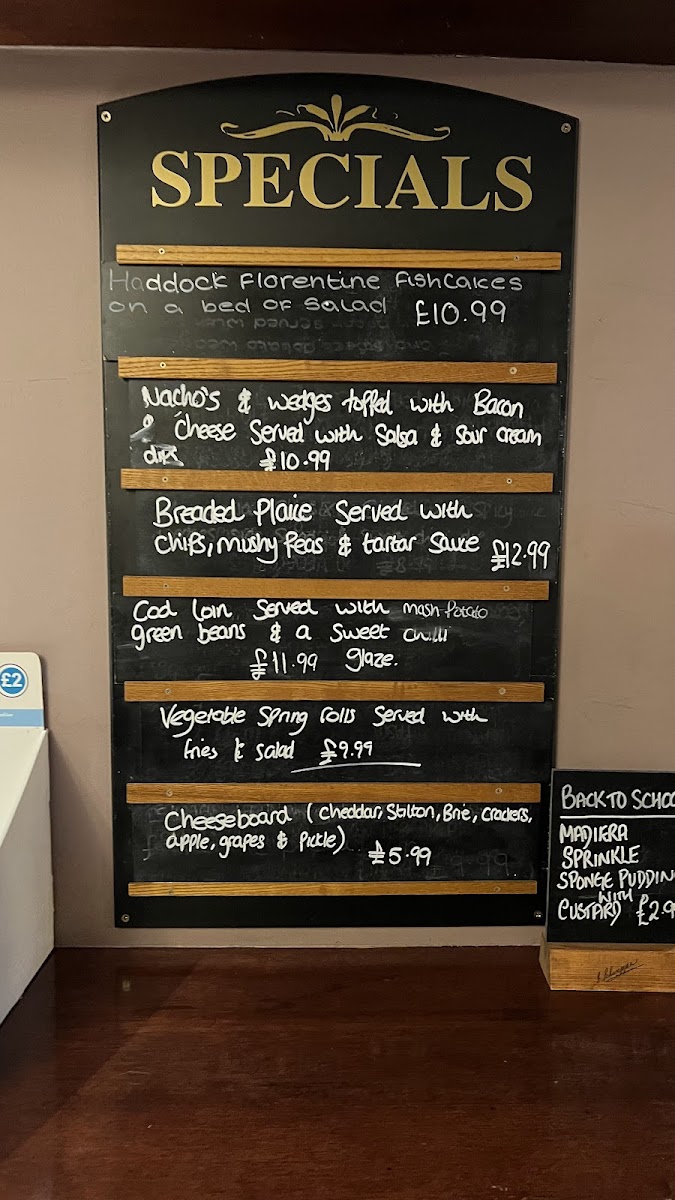 SPECIALS
Haddock Florentine fishcakes
on a bed of salad £10.99
Nacho's & wedges topped with Bacon
& Cheese Served with Salsa & Sour cream
dips £10.99
Breaded Plaice Served with
chips, mushy peas & tartar sauce £12.99
Cod loin Served with mash potato
green beans & a Sweet chilli
£11.99 glaze.
Vegetable Spring rolls Served with
fries & Salad £9.99
Cheeseboard (cheddar, Stilton, Brie, crackers,
apple, grapes & Pickle) £5.99
£2
BACK TO SCHOO
MADIERA
SPRINKLE
SPONGE PUDDIN
WITH
CUSTARD £2.9